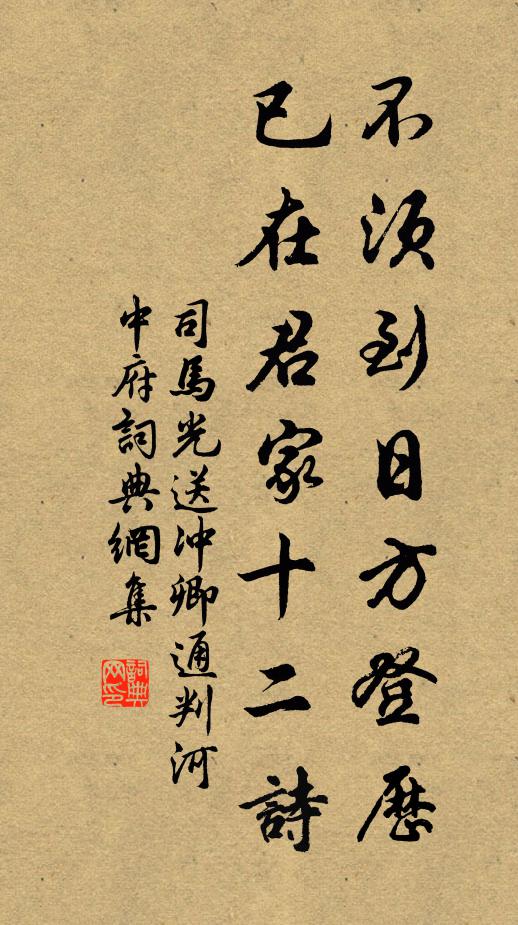 不須到日方登歷
已在君家十二詩
司馬光送沖卿通判河
中府詞典網集
詞典
网印